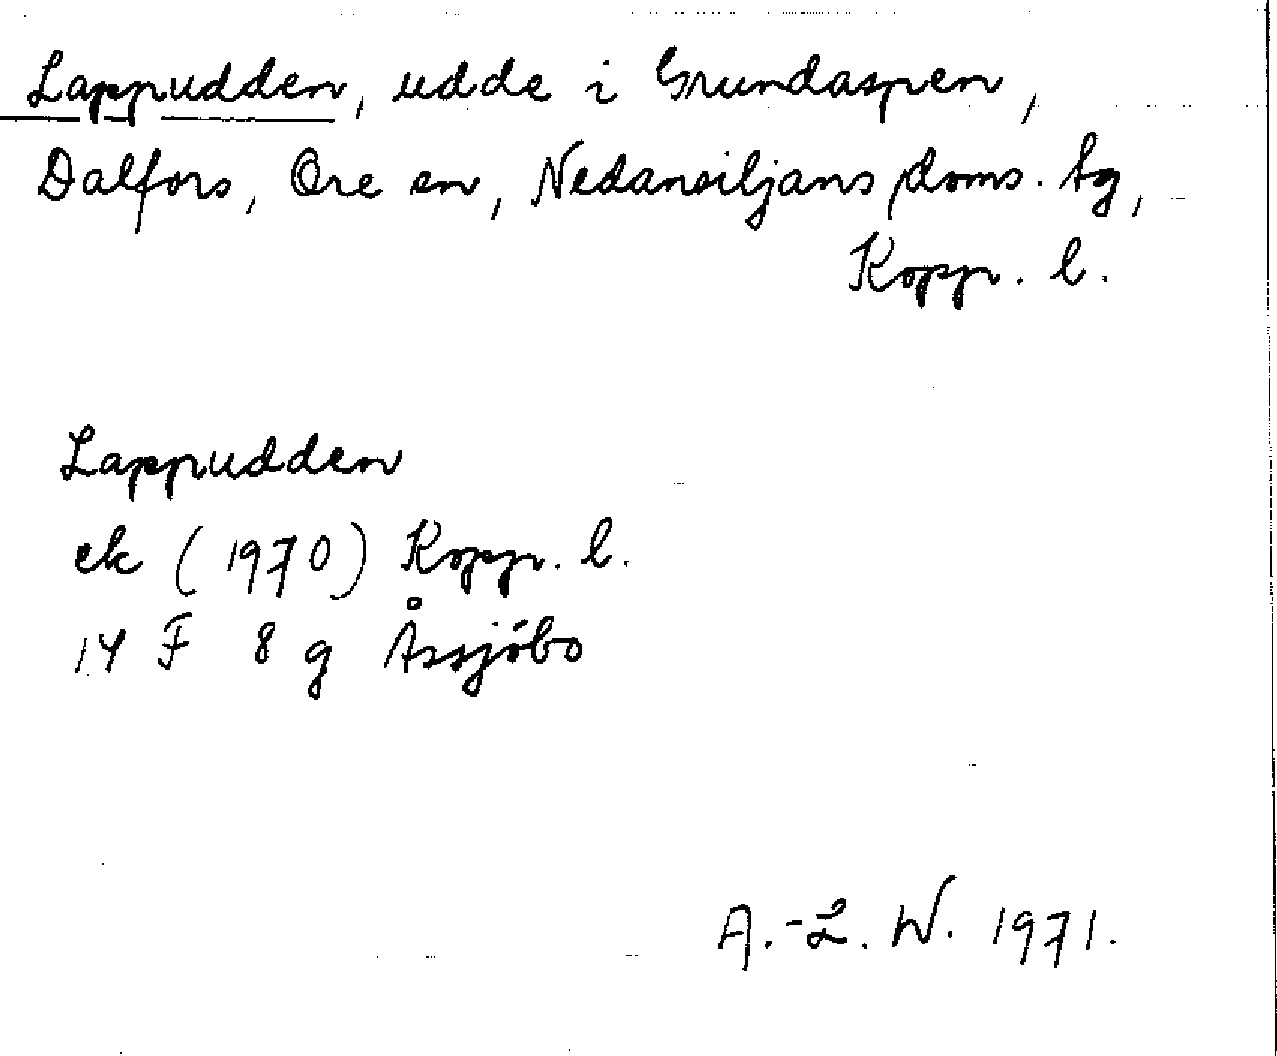 Lappudden, udde i Grundaspen,
Dalfors, Ore sn, Nedansiljans doms. tg,
Kopp. l.
Lappudden
ek (1970) Kopp. l.
14 F 8 g Åssjöbo
A.-L. W. 1971.